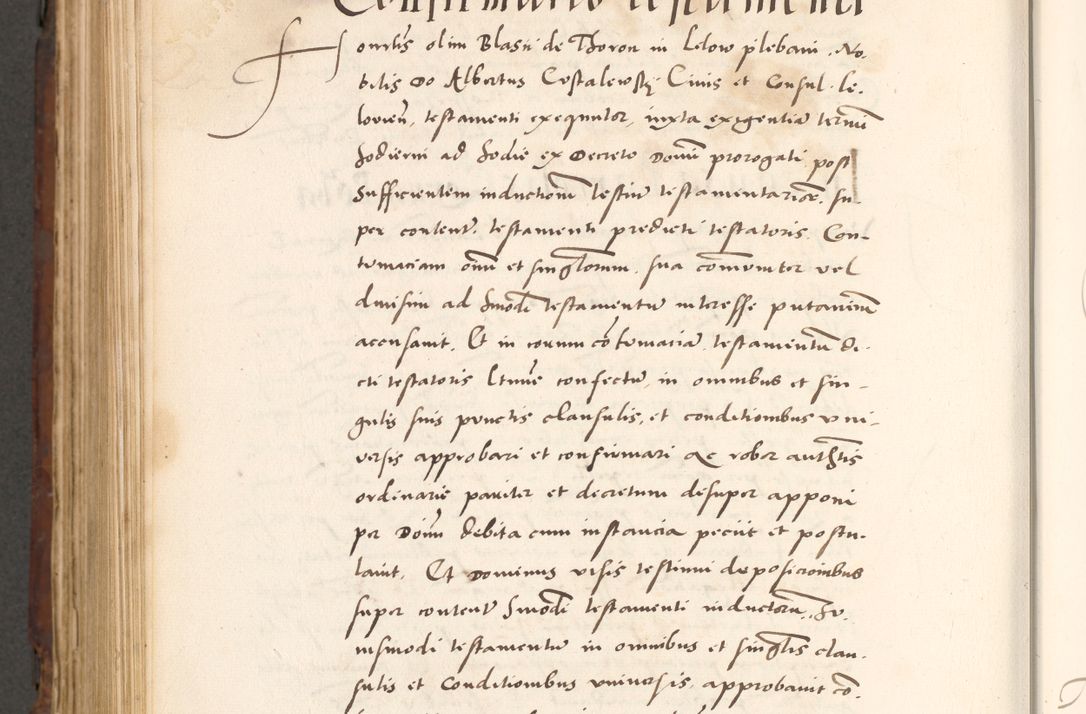 Confirmatio testamenti
Honorabilis olim Blasii de Thoron in Lelow plebani No-
bilis Do Albertus Costalewsky Civis et Consul le-
lovien. testamenti exequutor, iuxta exigentiam termini
hodierni ad hodie ex Decreto Domini prorogati post
Sufficientem inductionem testium testamentariorum, su-
per content. testamenti predicti testatoris. Con-
tumaciam omnium et singulorum, sua communiter vel
divisim ad huiusmodi testamentum interesse putantium
accusavit, Et in eorum contumaciam testamentum di-
cti testatoris ltime confectum, in omnibus et sin-
gulis suis punctis clausulis, et conditionibus vni-
versis approbari et confirmari ac robor authtis
ordinarie pariter et decretum desuper apponi
per Domin debita cum instancia peciit et postu-
lavit, Et Dominus visis testium deposicionibus
super content huiusmodi testamenti inductorum, hu-
iusmodi testamentum in omnibus et singulis clau-
sulis et Conditionibus universis, approbavit co-